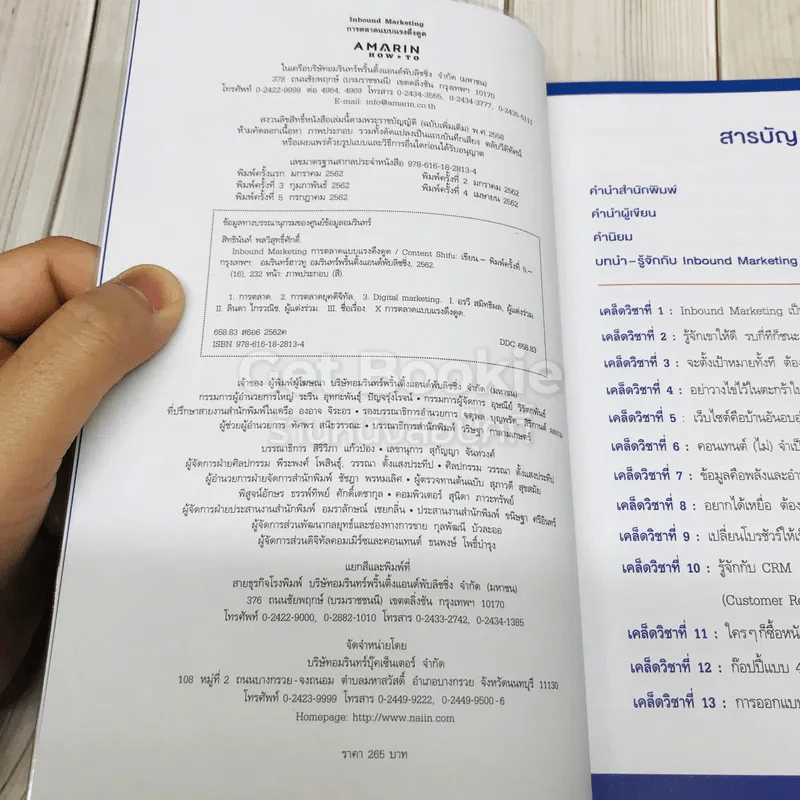 Inbound Marketing
การตลาดแบบแรงดึงดูด
AMARIN
HOW TO
ในเครือบริษัทอมรินทร์พริ้นติ้งแอนด์พับลิชชิ่ง จำกัด (มหาชน)
378 ถนนชัยพฤกษ์ (บรมราชชนนี) เขตตลิ่งชัน กรุงเทพฯ 10170
โทรศัพท์ 0-2422-9999 ต่อ 4964, 4969 โทรสาร 0-2434-3555, 0-2434-3777, 0-2435-5111
E-mail: info@amarin.co.th
สงวนลิขสิทธิ์หนังสือเล่มนี้ตามพระราชบัญญัติ (ฉบับเพิ่มเติม) พ.ศ. 2558
ห้ามคัดลอกเนื้อหา ภาพประกอบ รวมทั้งดัดแปลงเป็นแถบบันทึกเสียง ตลับวีดิทัศน์
หรือเผยแพร่ด้วยรูปแบบและวิธีการอื่นใดก่อนได้รับอนุญาต
เลขมาตรฐานสากลประจำหนังสือ 978-616-18-2813-4
พิมพ์ครั้งแรก มกราคม 2562 พิมพ์ครั้งที่ 2 มกราคม 2562
พิมพ์ครั้งที่ 3 กุมภาพันธ์ 2562 พิมพ์ครั้งที่ 4 เมษายน 2562
พิมพ์ครั้งที่ 5 กรกฎาคม 2562
ข้อมูลทางบรรณานุกรมของศูนย์ข้อมูลอมรินทร์
สิทธินันท์ พลวิสุทธิ์ศักดิ์
Inbound Marketing การตลาดแบบแรงดึงดูด / Content Shifu: เขียน.- พิมพ์ครั้งที่ 5.-
กรุงเทพฯ: อมรินทร์ฮาวทู อมรินทร์พริ้นติ้งแอนด์พับลิชชิ่ง, 2562.
(16), 232 หน้า: ภาพประกอบ (สี).
1. การตลาด. 2. การตลาดยุคดิจิทัล. 3. Digital marketing. I. อรวี สมิทธิผล, ผู้แต่งร่วม.
II. ลินดา ไกรวณิช, ผู้แต่งร่วม. III. ชื่อเรื่อง. X การตลาดแบบแรงดึงดูด.
658.83 ส6อ6 2562ค DDC 658.83
ISBN 978-616-18-2813-4
Get Bookie
เจ้าของ ผู้พิมพ์ผู้โฆษณา บริษัทอมรินทร์พริ้นติ้งแอนด์พับลิชชิ่ง จำกัด (มหาชน)
กรรมการผู้อำนวยการใหญ่ ระริน อุทกะพันธุ์ ปัญจรุ่งโรจน์ • กรรมการผู้จัดการ อุษณีย์ วิรัตกพันธ์
ที่ปรึกษาสายงานสำนักพิมพ์ในเครือ องอาจ จิระอร • รองบรรณาธิการอำนวยการ จตุพล บุญพรัด,
ผู้ช่วยผู้อำนวยการ ทัศพร สนิธวรรณะ • บรรณาธิการสำนักพิมพ์ วริษฐา
บรรณาธิการ สิริวิภา แก้วป่อง • เลขานุการ สุกัญญา จันทวงศ์
ผู้จัดการฝ่ายศิลปกรรม พีระพงศ์ โพสินธุ์, วรรณา ตั้งแสงประทีป • ศิลปกรรม วรรณา ตั้งแสงประทีป
ผู้อำนวยการฝ่ายจัดการสำนักพิมพ์ ชัชฎา พรหมเลิศ • ผู้ตรวจทานต้นฉบับ สุภาวดี สุขสมัย
พิสูจน์อักษร ธรรพ์ทิพย์ ศักดิ์เดชากุล • คอมพิวเตอร์ สุนิดา ภาวะทรัพย์
ผู้จัดการฝ่ายประสานงานสำนักพิมพ์ อมราลักษณ์ เชยกลิ่น • ประสานงานสำนักพิมพ์ ขนิษฐา ศรีอินทร์
ผู้จัดการส่วนพัฒนากลยุทธ์และช่องทางการขาย กุลพัฒน์ บัวละออ
ผู้จัดการส่วนดิจิทัลคอมเมิร์ซและคอนเทนต์ ธนพงษ์ โพธิ์บำรุง
แยกสีและพิมพ์ที่
สายธุรกิจโรงพิมพ์ บริษัทอมรินทร์พริ้นติ้งแอนด์พับลิชชิ่ง จำกัด (มหาชน)
376 ถนนชัยพฤกษ์ (บรมราชชนนี) เขตตลิ่งชัน กรุงเทพฯ 10170
โทรศัพท์ 0-2422-9000, 0-2882-1010 โทรสาร 0-2433-2742, 0-2434-1385
จัดจำหน่ายโดย
บริษัทอมรินทร์บุ๊คเซ็นเตอร์ จำกัด
108 หมู่ที่ 2 ถนนบางกรวย-จงถนอม ตำบลมหาสวัสดิ์ อำเภอบางกรวย จังหวัดนนทบุรี 11130
โทรศัพท์ 0-2423-9999 โทรสาร 0-2449-9222, 0-2449-9500-6
Homepage: http://www.naiin.com
ราคา 265 บาท
สารบัญ
คำนำสำนักพิมพ์
คำนำผู้เขียน
คำนิยม
บทนำ-รู้จักกับ Inbound Marketing
เคล็ดวิชาที่ 1 : Inbound Marketing เป็
เคล็ดวิชาที่ 2 : รู้จักเขาให้ดี รบกี่ทีก็ชนะ
เคล็ดวิชาที่ 3 : จะตั้งเป้าหมายทั้งที ต้อง
เคล็ดวิชาที่ 4 : อย่าวางไข่ไว้ในตะกร้าใบ
เคล็ดวิชาที่ 5 : เว็บไซต์คือบ้านอันอบอ
เคล็ดวิชาที่ 6 : คอนเทนต์ (ไม่) จำเป็
เคล็ดวิชาที่ 7 : ข้อมูลคือพลังและอำ
เคล็ดวิชาที่ 8 : อยากได้เหยื่อ ต้อง
เคล็ดวิชาที่ 9 : เปลี่ยนโบรชัวร์ให้เ
เคล็ดวิชาที่ 10 : รู้จักกับ CRM
(Customer Re
เคล็ดวิชาที่ 11 : ใครๆก็ซื้อหนั
เคล็ดวิชาที่ 12 : ก๊อปปี้แบบ 4
เคล็ดวิชาที่ 13 : การออกแบบ